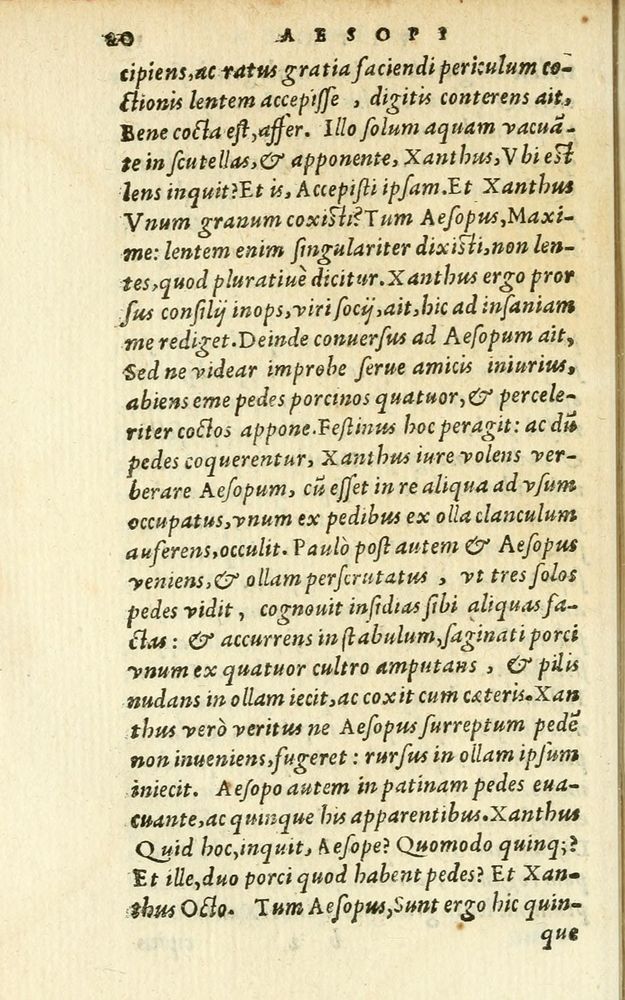 20 AESOPI
cipiens, ac ratus gratia faciendi periculum co-
ctionis lentem accepisse, digitis conterens ait,
Bene cocta est, affer. Illo solum aquam vacuã-
te in scutellas, & apponente, Xanthus, Vbi est
lens inquit? Et is, Accepisti ipsam. Et Xanthus
Vnum granum coxisti? Tum Aesopus, Maxi-
me: lentem enim singulariter dixisti, non len-
tes, quod pluratiuè dicitur. Xanthus ergo pror
sus consilij inops, viri socij, ait, hic ad insaniam
me rediget. Deinde conuersus ad Aesopum ait,
Sed ne videar improbe serue amicis iniurius,
abiens eme pedes porcinos quatuor, & percele-
riter coctos appone. Festinus hoc peragit: ac dũ
pedes coquerentur, Xanthus iure volens ver-
berare Aesopum, cũ esset in re aliqua ad vsum
occupatus, vnum ex pedibus ex olla clanculum
auferens, occulit. Paulò post autem & Aesopus
veniens, & ollam perscrutatus, vt tres solos
pedes vidit, cognouit insidias sibi aliquas fa-
ctas: & accurrens in stabulum, saginati porci
vnum ex quatuor cultro amputans, & pilis
nudans in ollam iecit, ac coxit cum cæteris. Xan
thus verò veritus ne Aesopus surreptum pedẽ
non inueniens, fugeret: rursus in ollam ipsum
iniecit. Aesopo autem in patinam pedes eua-
cuante, ac quinque his apparentibus. Xanthus
Quid hoc, inquit, Aesope? Quomodo quinq;?
Et ille, duo porci quod habent pedes? Et Xan-
thus Octo. Tum Aesopus, Sunt ergo hic quin-
que